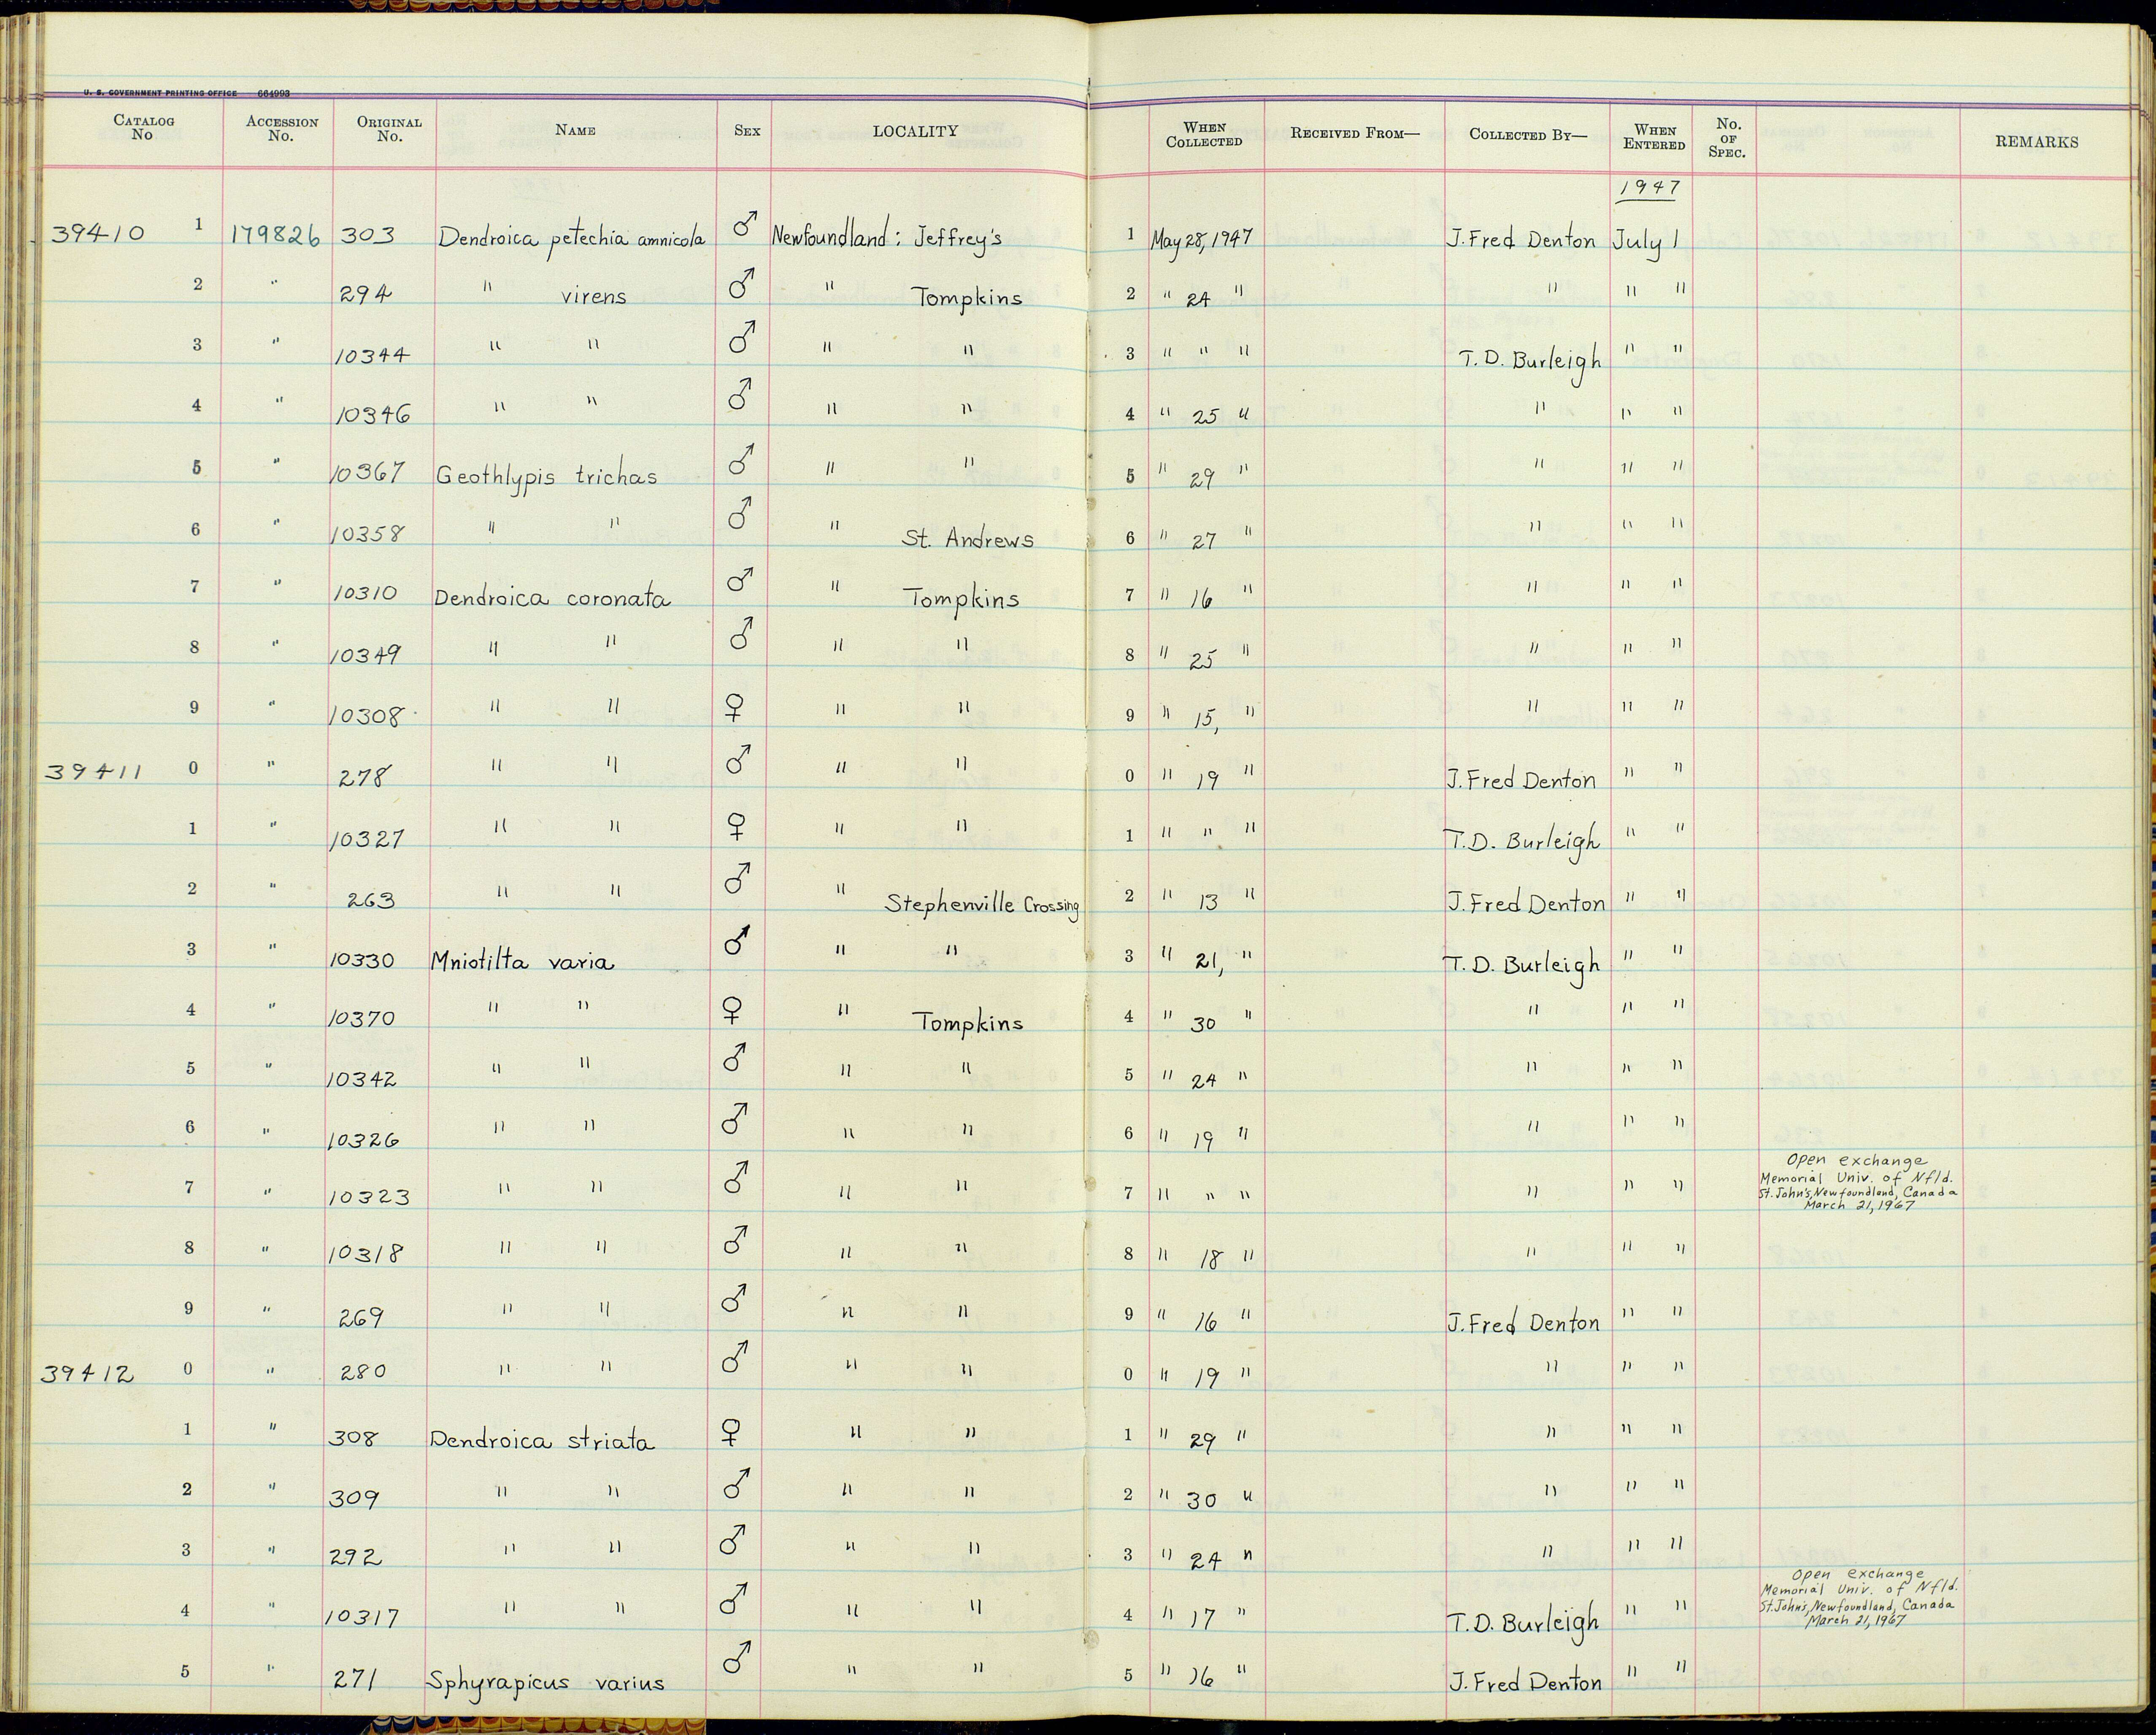 U. S. GOVERNMENT PRINTING OFFICE 664993
CATALOG No ACCESSION No. ORIGINAL No. NAME SEX LOCALITY WHEN COLLECTED RECEIVED FROM— COLLECTED BY— WHEN ENTERED No. OF SPEC. REMARKS
1947
39410 1 179826 303 Dendroica petechia amnicola ♂ Newfoundland: Jeffrey's 1 May 28, 1947 J. Fred Denton July 1
2 " 294 " virens ♂ " Tompkins 2 " 24 " " " "
3 " 10344 " " ♂ " " 3 " " " T. D. Burleigh " "
4 " 10346 " " ♂ " " 4 " 25 " " " "
5 " 10367 Geothlypis trichas ♂ " " 5 " 29 " " " "
6 " 10358 " " ♂ " St. Andrews 6 " 27 " " " "
7 " 10310 Dendroica coronata ♂ " Tompkins 7 " 16 " " " "
8 " 10349 " " ♂ " " 8 " 25 " " " "
9 " 10308 " " ♀ " " 9 " 15, " " " "
39411 0 " 278 " " ♂ " " 0 " 19 " J. Fred Denton " "
1 " 10327 " " ♀ " " 1 " " " T. D. Burleigh " "
2 " 263 " " ♂ " Stephenville Crossing 2 " 13 " J. Fred Denton " "
3 " 10330 Mniotilta varia ♂ " " 3 " 21, " T. D. Burleigh " "
4 " 10370 " " ♀ " Tompkins 4 " 30 " " " "
5 " 10342 " " ♂ " " 5 " 24 " " " "
6 " 10326 " " ♂ " " 6 " 19 " " " "
7 " 10323 " " ♂ " " 7 " " " " " " Open exchange
Memorial Univ. of Nfld.
St. John's, Newfoundland, Canada
March 21, 1967
8 " 10318 " " ♂ " " 8 " 18 " " " "
9 " 269 " " ♂ " " 9 " 16 " J. Fred Denton " "
39412 0 " 280 " " ♂ " " 0 " 19 " " " "
1 " 308 Dendroica striata ♀ " " 1 " 29 " " " "
2 " 309 " " ♂ " " 2 " 30 " " " "
3 " 292 " " ♂ " " 3 " 24 " " " "
4 " 10317 " " ♂ " " 4 " 17 " T. D. Burleigh " " Open exchange
Memorial Univ. of Nfld.
St. John's, Newfoundland, Canada
March 21, 1967
5 " 271 Sphyrapicus varius ♂ " " 5 " 16 " J. Fred Denton " "